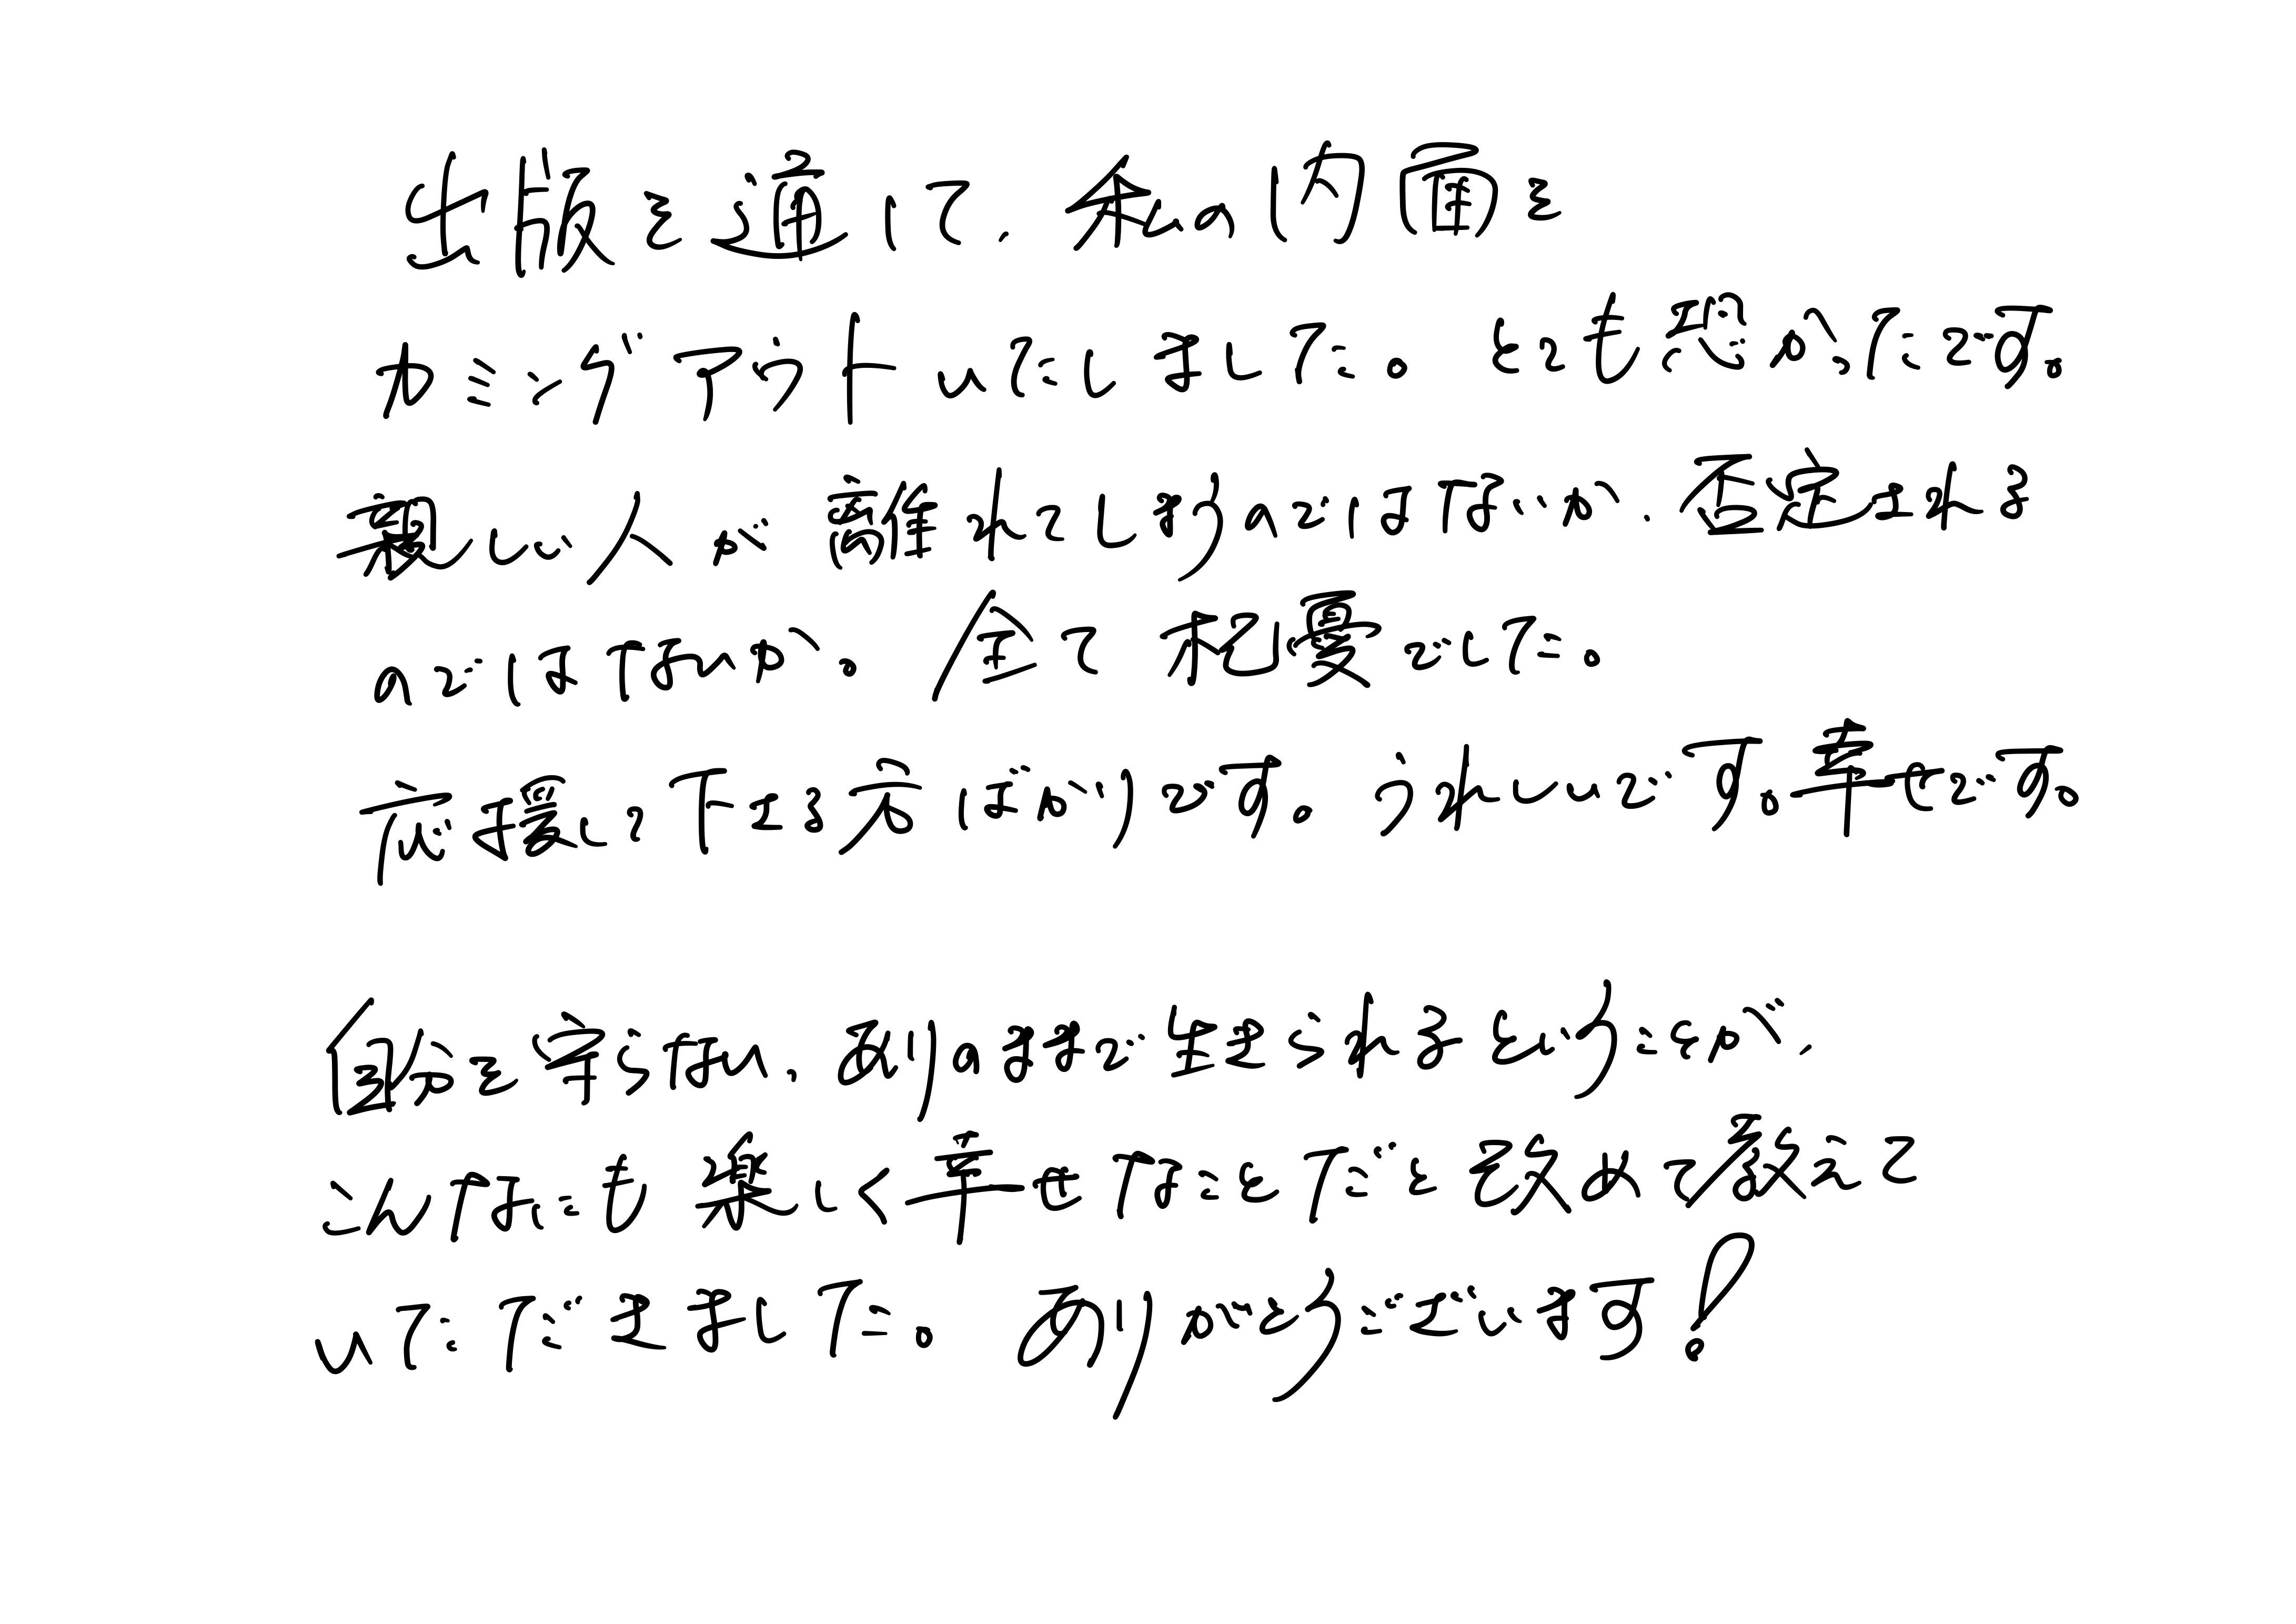 出版を通して、私の内面を
カミングアウトいたしました。とても恐かったです。
親しい人が離れてしまうのではないか、否定される
のではないか。全て杞憂でした。
応援して下さる方ばかりです。うれしいです。幸せです。
自分を守らない、ありのままで生きられるということが、
こんなにも楽しく幸せなことだと改めて教えて
いただきました。ありがとうございます！